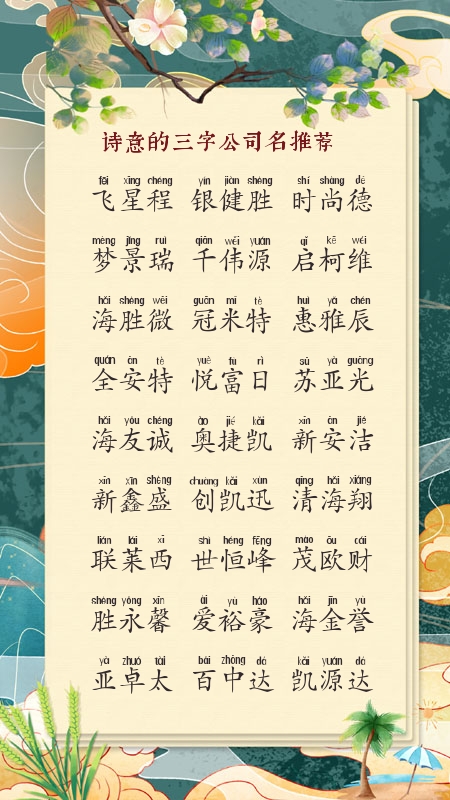 诗意的三字公司名推荐
fēi xīng chéng yín jiàn shèng shí shàng dé
飞星程 银健胜 时尚德
mèng jǐng ruì qiān wěi yuán qǐ kē wéi
梦景瑞 千伟源 启柯维
hǎi shèng wēi guān mǐ tè huì yǎ chén
海胜微 冠米特 惠雅辰
quán ān tè yuè fù rì sū yà guāng
全安特 悦富日 苏亚光
hǎi yǒu chéng ào jié kǎi xīn ān jié
海友诚 奥捷凯 新安洁
xīn xīn shèng chuàng kǎi xùn qīng hǎi xiáng
新鑫盛 创凯迅 清海翔
lián lái xī shì héng fēng mào ōu cái
联莱西 世恒峰 茂欧财
shèng yǒng xīn ài yù háo hǎi jīn yù
胜永馨 爱裕豪 海金誉
yà zhuó tài bǎi zhōng dá kǎi yuán dá
亚卓太 百中达 凯源达